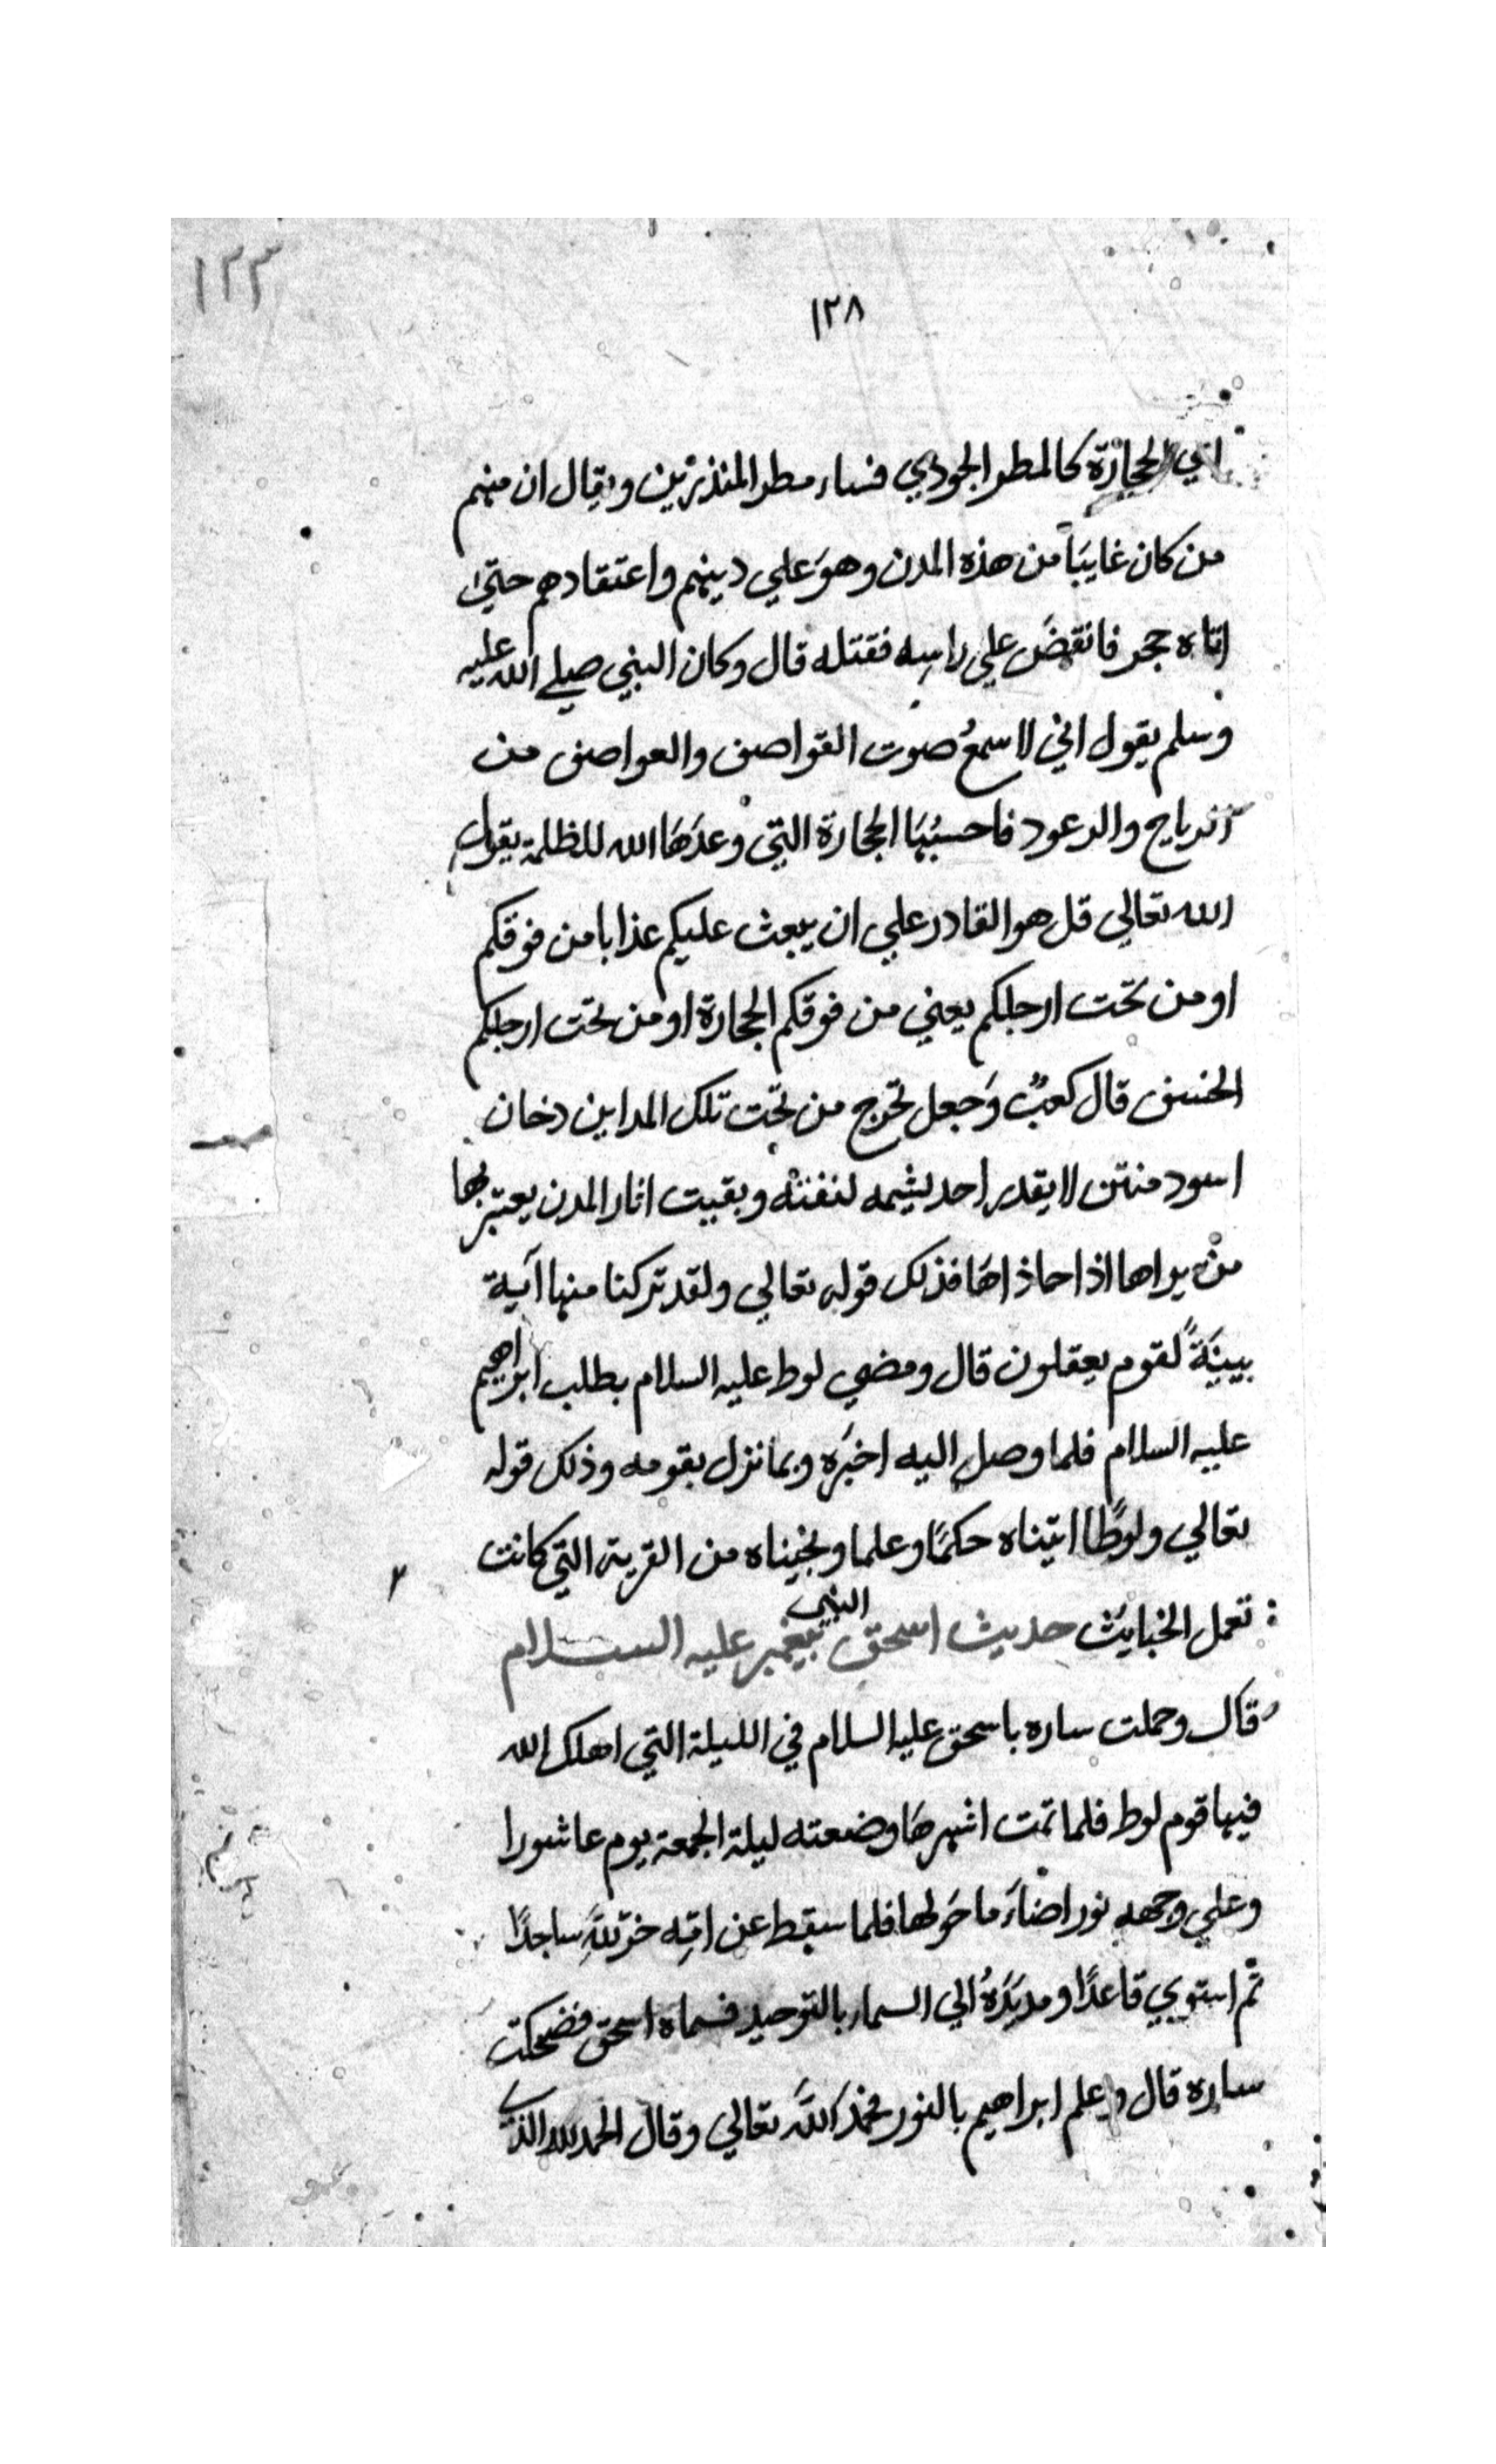 ١٢٣
١٢٨
الحجارة كالمطر الجودي فساء مطر المنذرين ويقال ان منهم
من كان غايبًا من هذه المدن وهوَ علي دينهم واعتقادهم حتي
اتاه حجر فانقضَ علي راسه فقتله قال وكان النبي صلي الله عليه
وسلم يقول اني لاسمعُ صوت القواصف والعواصف من
الرياح والرعود فاحسبُهَا الحجارة التي وعدَهَا الله للظلمة يقول
الله تعالي قل هو القادر علي ان يبعث عليكم عذابا من فوقكم
او من تحت ارجلكم يعني من فوقكم الحجارة او من تحت ارجلكم
الخسف قال كعبٌ وَجعل تخرج من تحت تلك المداين دخان
اسود منتن لا يقدر احد يشمه لنفنته وبقيت اثار المدن يعتبر بها
من يراها اذا حاذاهَا فذلك قوله تعالي ولقد تركنا منها آية
بيينَةً لقوم يعقلون قال ومضي لوط عليه السلام بطلب ابراهيم
عليه السلام فلما وصل اليه اخبرَه وبما نزل بقومه وذلك قوله
تعالي ولوطًا اتيناه حكمًا وعلما ونجيناه من القرية التي كانت
تعمل الخبايث حديث اسحق النبي پيغمبر عليه السلام
قال وحملت ساره باسحق عليه السلام في الليلة التي اهلك الله
فيها قوم لوط فلما تمت اشهرهَا وضعته ليلة الجمعة يوم عاشورا
وعلي وجهه نور اضاءَ ما حَولها فلما سقط عن امّه خرّ للهِ ساجدًا
ثم استوي قاعدًا ومد يَدَهُ الي السماء بالتوحيد فسماه اسحق فضحكت
ساره قال وعلم ابراهيم بالنور فحمدَ اللهَ تعالي وقال الحمد لله الذي